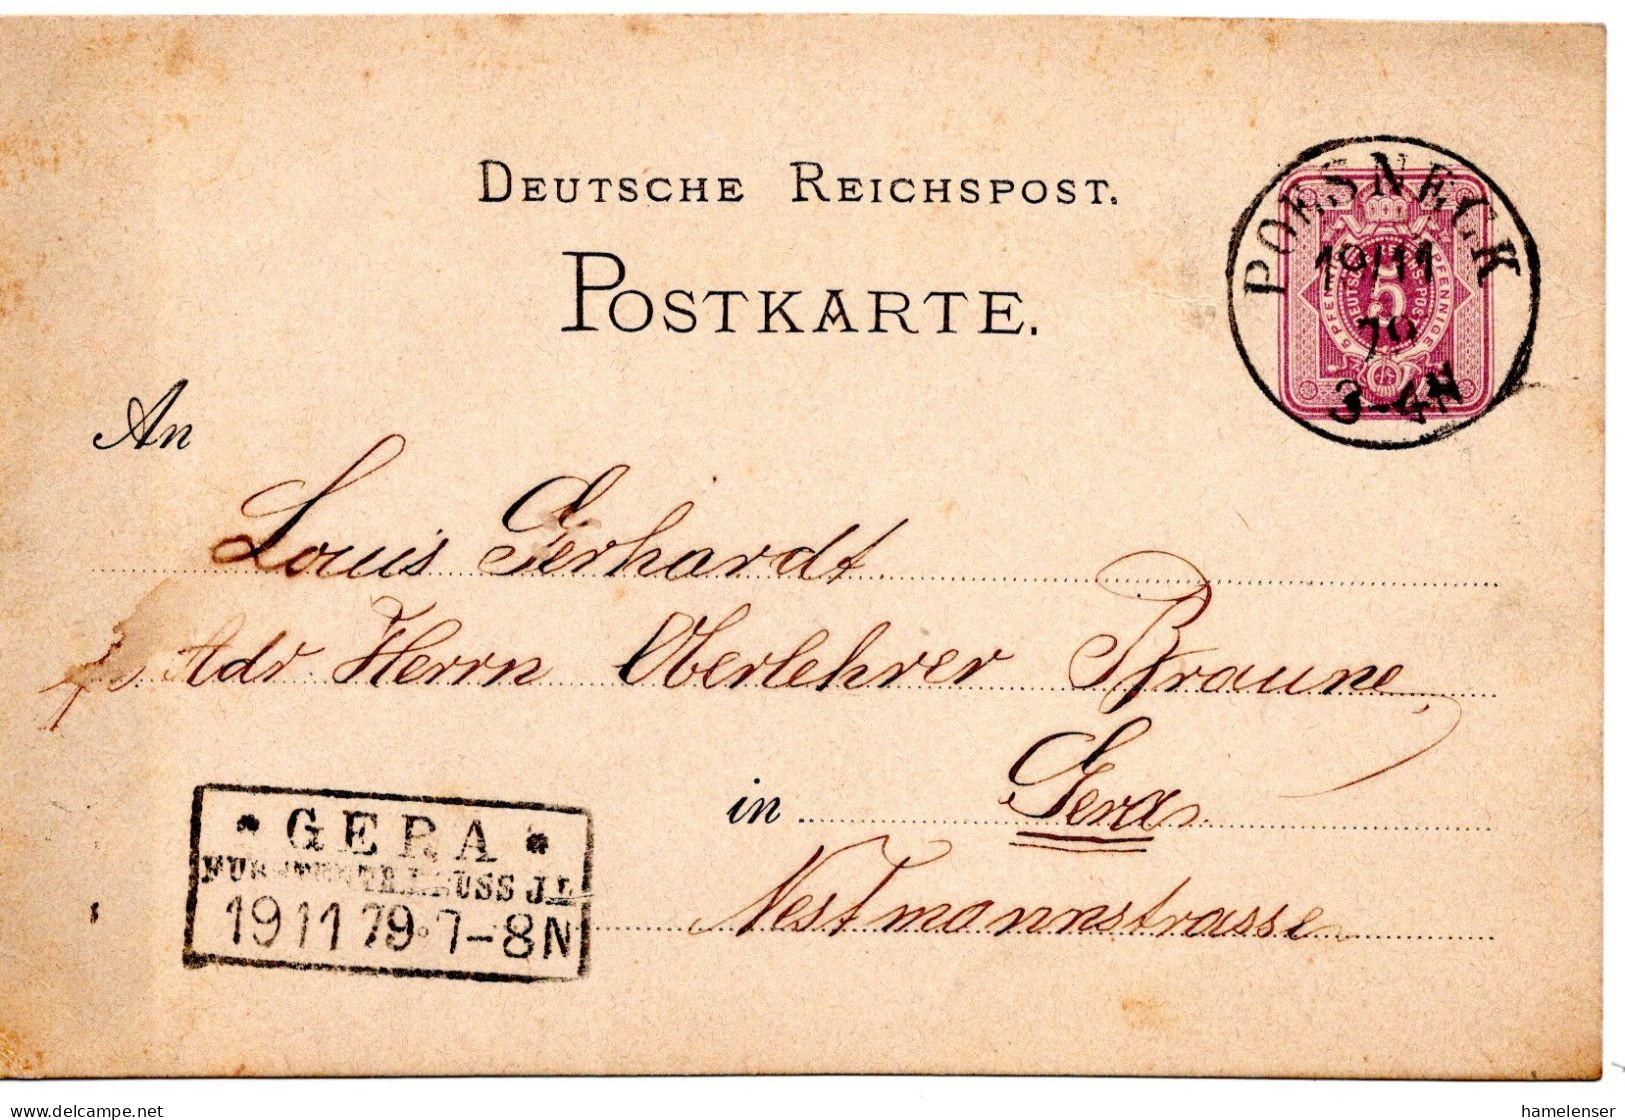 DEUTSCHE REICHSPOST.
POSTKARTE.
POESNECK
19/11
79
3-4N
5 PFENNIGE
DEUTSCHE REICHS-POST
5 PFENNIGE
5
An
Louis Gerhardt
Adr. Herrn Oberlehrer Braune,
in Gera
Nestmannstrasse
* GERA *
FURSTENTH. REUSS J.L.
19 11 79. 7-8N
delcampe.net
hamelenser